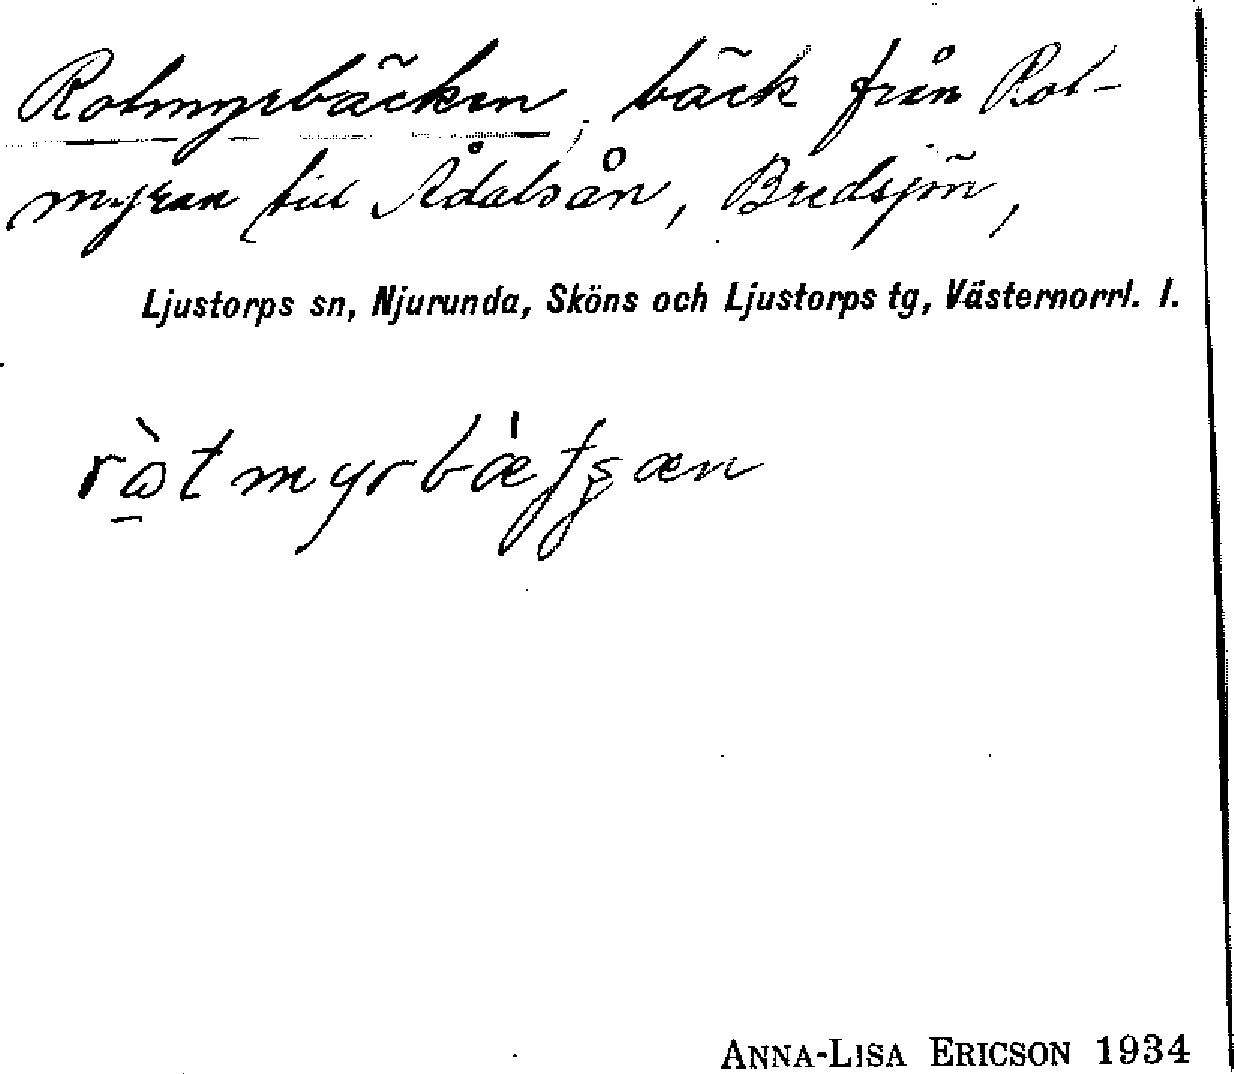 Rotmyrbäcken, bäck från Rot-
myran till Ådalsån, Bredsjön,
Ljustorps sn, Njurunda, Sköns och Ljustorps tg, Västernorrl. l.
ANNA-LISA ERICSON 1934